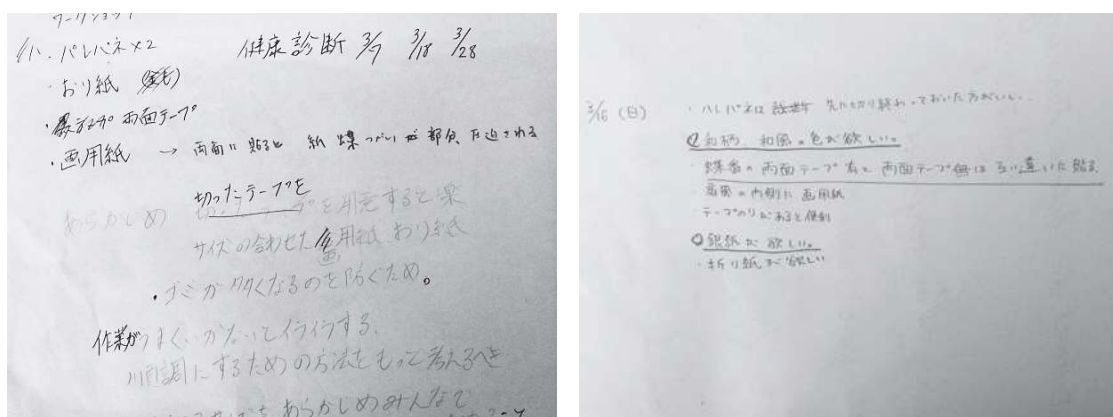 ワークショップ
・ハレパネ×2
健康診断 3/7 3/18 3/28
・おり紙
・両面テープ
・画用紙 → 両面に貼ると 紙 蝶つがい 部分
切ったテープを
あらかじめ を用意すると楽
サイズの合わせた 画用紙 おり紙
・ゴミが多くなるのを防ぐため。
作業がうまくいかないとイライラする。
順調にするための方法をもっと考えるべき
あらかじめみんなで
3/16 (日) ・ハレパネは 先に切り終わっておいた方がいい。
和柄、和風の色が欲しい。
・蝶番の両面テープ有と両面テープ無は互い違いに貼る
の内側に 画用紙
・テープのりがあると便利
銀紙が欲しい。
・折り紙が欲しい